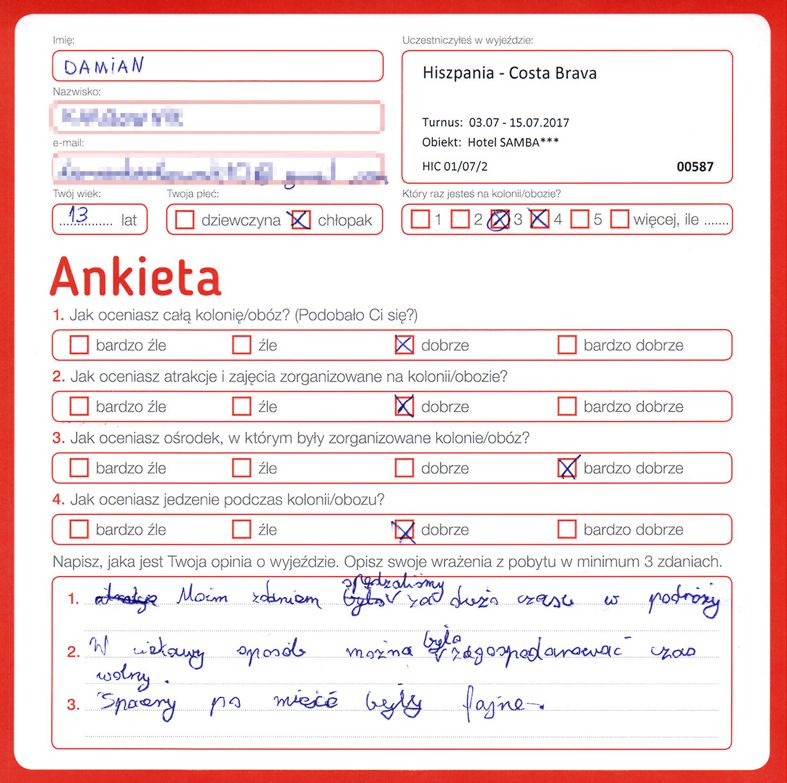 Imię:
DAMIAN
Nazwisko:
e-mail:
Twój wiek:
13 lat
Twoja płeć:
dziewczyna chłopak
Uczestniczyłeś w wyjeździe:
Hiszpania - Costa Brava
Turnus: 03.07 - 15.07.2017
Obiekt: Hotel SAMBA***
HIC 01/07/2 00587
Który raz jesteś na kolonii/obozie?
1 2 3 4 5 więcej, ile .......
Ankieta
1. Jak oceniasz całą kolonię/obóz? (Podobało Ci się?)
bardzo źle źle dobrze bardzo dobrze
2. Jak oceniasz atrakcje i zajęcia zorganizowane na kolonii/obozie?
bardzo źle źle dobrze bardzo dobrze
3. Jak oceniasz ośrodek, w którym były zorganizowane kolonie/obóz?
bardzo źle źle dobrze bardzo dobrze
4. Jak oceniasz jedzenie podczas kolonii/obozu?
bardzo źle źle dobrze bardzo dobrze
Napisz, jaka jest Twoja opinia o wyjeździe. Opisz swoje wrażenia z pobytu w minimum 3 zdaniach.
1. Moim zdaniem spędzaliśmy za dużo czasu w podróży
2. W ciekawy sposób można było zagospodarować czas
wolny.
3. Spacery po mieście były fajne.